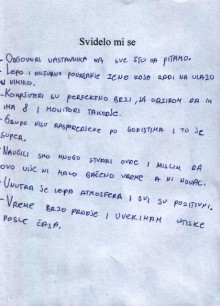 Svidelo mi se
- ODGOVORI NASTAVNIKA NA SVE ŠTO GA PITAMO.
- LEPO I KULTURNO PONAŠANJE ŽENE KOJA RADI NA ULAZU
U
- KOMPJUTERI SU PERFEKTNO BRZI, SA OBZIROM DA IH
IMA 8 I MONITORI TAKODJE.
- GRUPE NISU RASPOREDJENE PO GODIŠTIMA I TO JE
SUPER.
- NAUČILI SMO MNOGO STVARI OVDE I MISLIM DA
OVO VIŠE NI MALO BAČENO VREME A NI NOVAC.
- UNUTRA JE LEPA ATMOSFERA I SVI SU POZITIVNI.
- VREME BRZO PRODJE I UVEK IMAM UTISKE
POSLE ČASA.